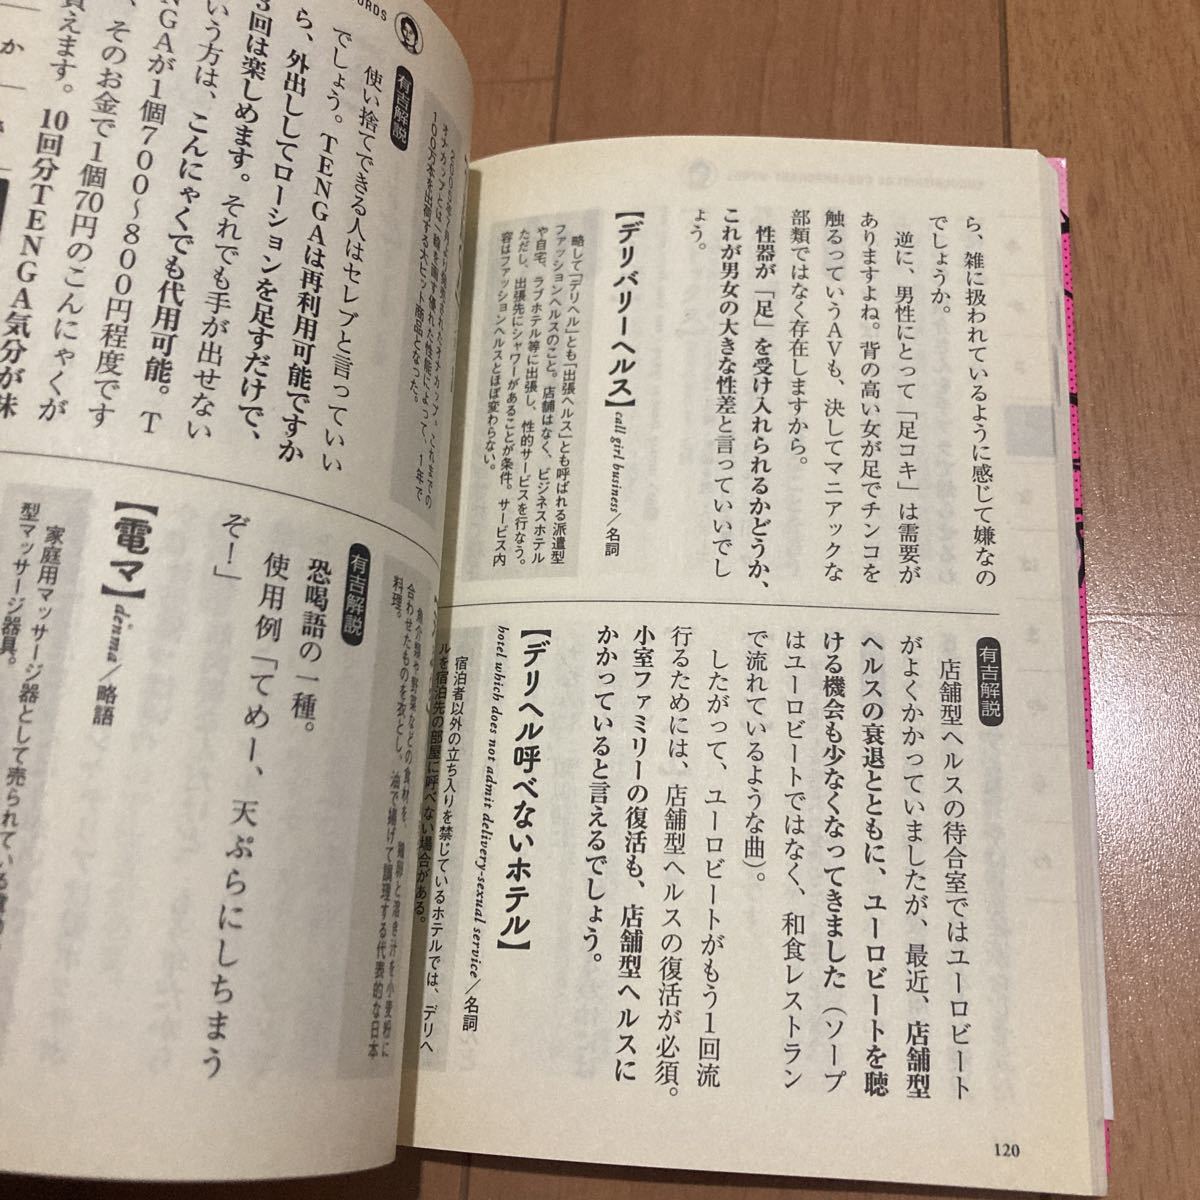 ら、雑に扱われているように感じて嫌なの
でしょうか。
逆に、男性にとって「足コキ」は需要が
ありますよね。背の高い女が足でチンコを
触るっていうAVも、決してマニアックな
部類ではなく存在しますから。
性器が「足」を受け入れられるかどうか、
これが男女の大きな性差と言っていいでし
ょう。
【デリバリーヘルス】call girl business／名詞
略して「デリヘル」とも「出張ヘルス」とも呼ばれる派遣型
ファッションヘルスのこと。店舗はなく、ビジネスホテル
や自宅、ラブホテル等に出張し、性的サービスを行なう。
ただし、出張先にシャワーがあることが条件。サービス内
容はファッションヘルスとほぼ変わらない。
有吉解説
店舗型ヘルスの待合室ではユーロビート
がよくかかっていましたが、最近、店舗型
ヘルスの衰退とともに、ユーロビートを聴
ける機会も少なくなってきました（ソープ
はユーロビートではなく、和食レストラン
で流れているような曲）。
したがって、ユーロビートがもう1回流
行るためには、店舗型ヘルスの復活が必須。
小室ファミリーの復活も、店舗型ヘルスに
かかっていると言えるでしょう。
【デリヘル呼べないホテル】
hotel which does not admit delivery-sexual service／名詞
宿泊者以外の立ち入りを禁じているホテルでは、デリヘ
ルを宿泊先の部屋に呼べない場合がある。
120
RDS
オナカップとは「線を画す優れた性能によって、1年で
100万本を出荷する大ヒット商品となった。
有吉解説
使い捨てできる人はセレブと言っていい
でしょう。TENGAは再利用可能ですか
ら、外出ししてローションを足すだけで、
3回は楽しめます。それでも手が出せない
いう方は、こんにゃくでも代用可能。T
NGAが1個700〜800円程度です
、そのお金で1個70円のこんにゃくが
買えます。10回分TENGA気分が味
か
合わせたものを衣とし、油で揚げて調理する代表的な日本
料理。
有吉解説
恐喝語の一種。
使用例「てめー、天ぷらにしちまう
ぞ！」
【電マ】denma／略語
家庭用マッサージ器として売られている
型マッサージ器具。